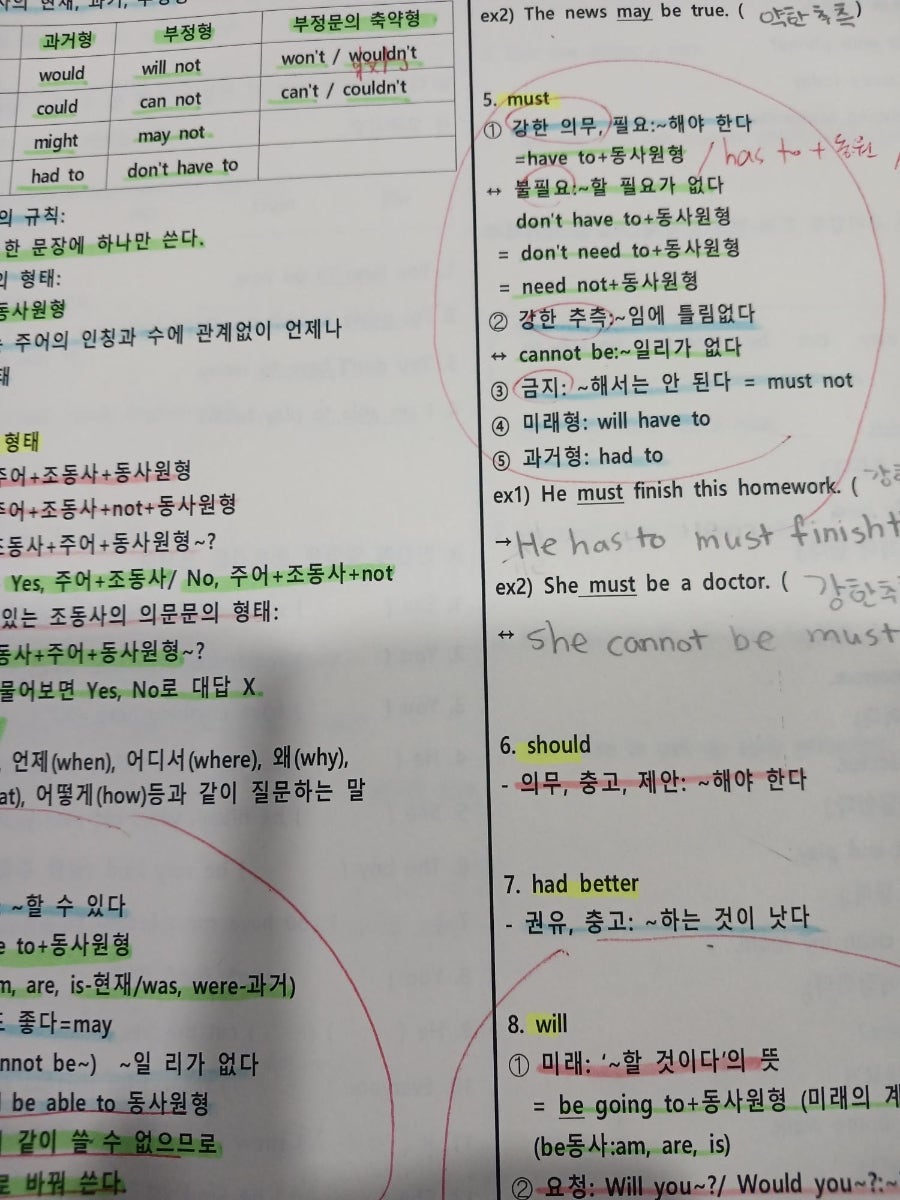 과거형 부정형 부정문의 축약형
would will not won't / wouldn't
could can not can't / couldn't
might may not
had to don't have to
의 규칙:
한 문장에 하나만 쓴다.
의 형태:
동사원형
주어의 인칭과 수에 관계없이 언제나
태
형태
주어+조동사+동사원형
주어+조동사+not+동사원형
조동사+주어+동사원형~?
Yes, 주어+조동사/ No, 주어+조동사+not
있는 조동사의 의문문의 형태:
동사+주어+동사원형~?
물어보면 Yes, No로 대답 X.
언제(when), 어디서(where), 왜(why),
at), 어떻게(how)등과 같이 질문하는 말
~할 수 있다
e to+동사원형
m, are, is-현재/was, were-과거)
도 좋다=may
nnot be~) ~일 리가 없다
be able to 동사원형
같이 쓸 수 없으므로
로 바꿔 쓴다.
ex2) The news may be true. ( 약한 추측)
5. must
① 강한 의무, 필요:~해야 한다
=have to+동사원형 / has to + 동원
↔ 불필요:~할 필요가 없다
don't have to+동사원형
= don't need to+동사원형
= need not+동사원형
② 강한 추측:~임에 틀림없다
↔ cannot be:~일리가 없다
③ 금지: ~해서는 안 된다 = must not
④ 미래형: will have to
⑤ 과거형: had to
ex1) He must finish this homework. ( 강한
→ He has to must finish
ex2) She must be a doctor. ( 강한추
↔ she cannot be must
6. should
- 의무, 충고, 제안: ~해야 한다
7. had better
- 권유, 충고: ~하는 것이 낫다
8. will
① 미래: '~할 것이다'의 뜻
= be going to+동사원형 (미래의 계
(be동사:am, are, is)
② 요청: Will you~?/ Would you~?:~